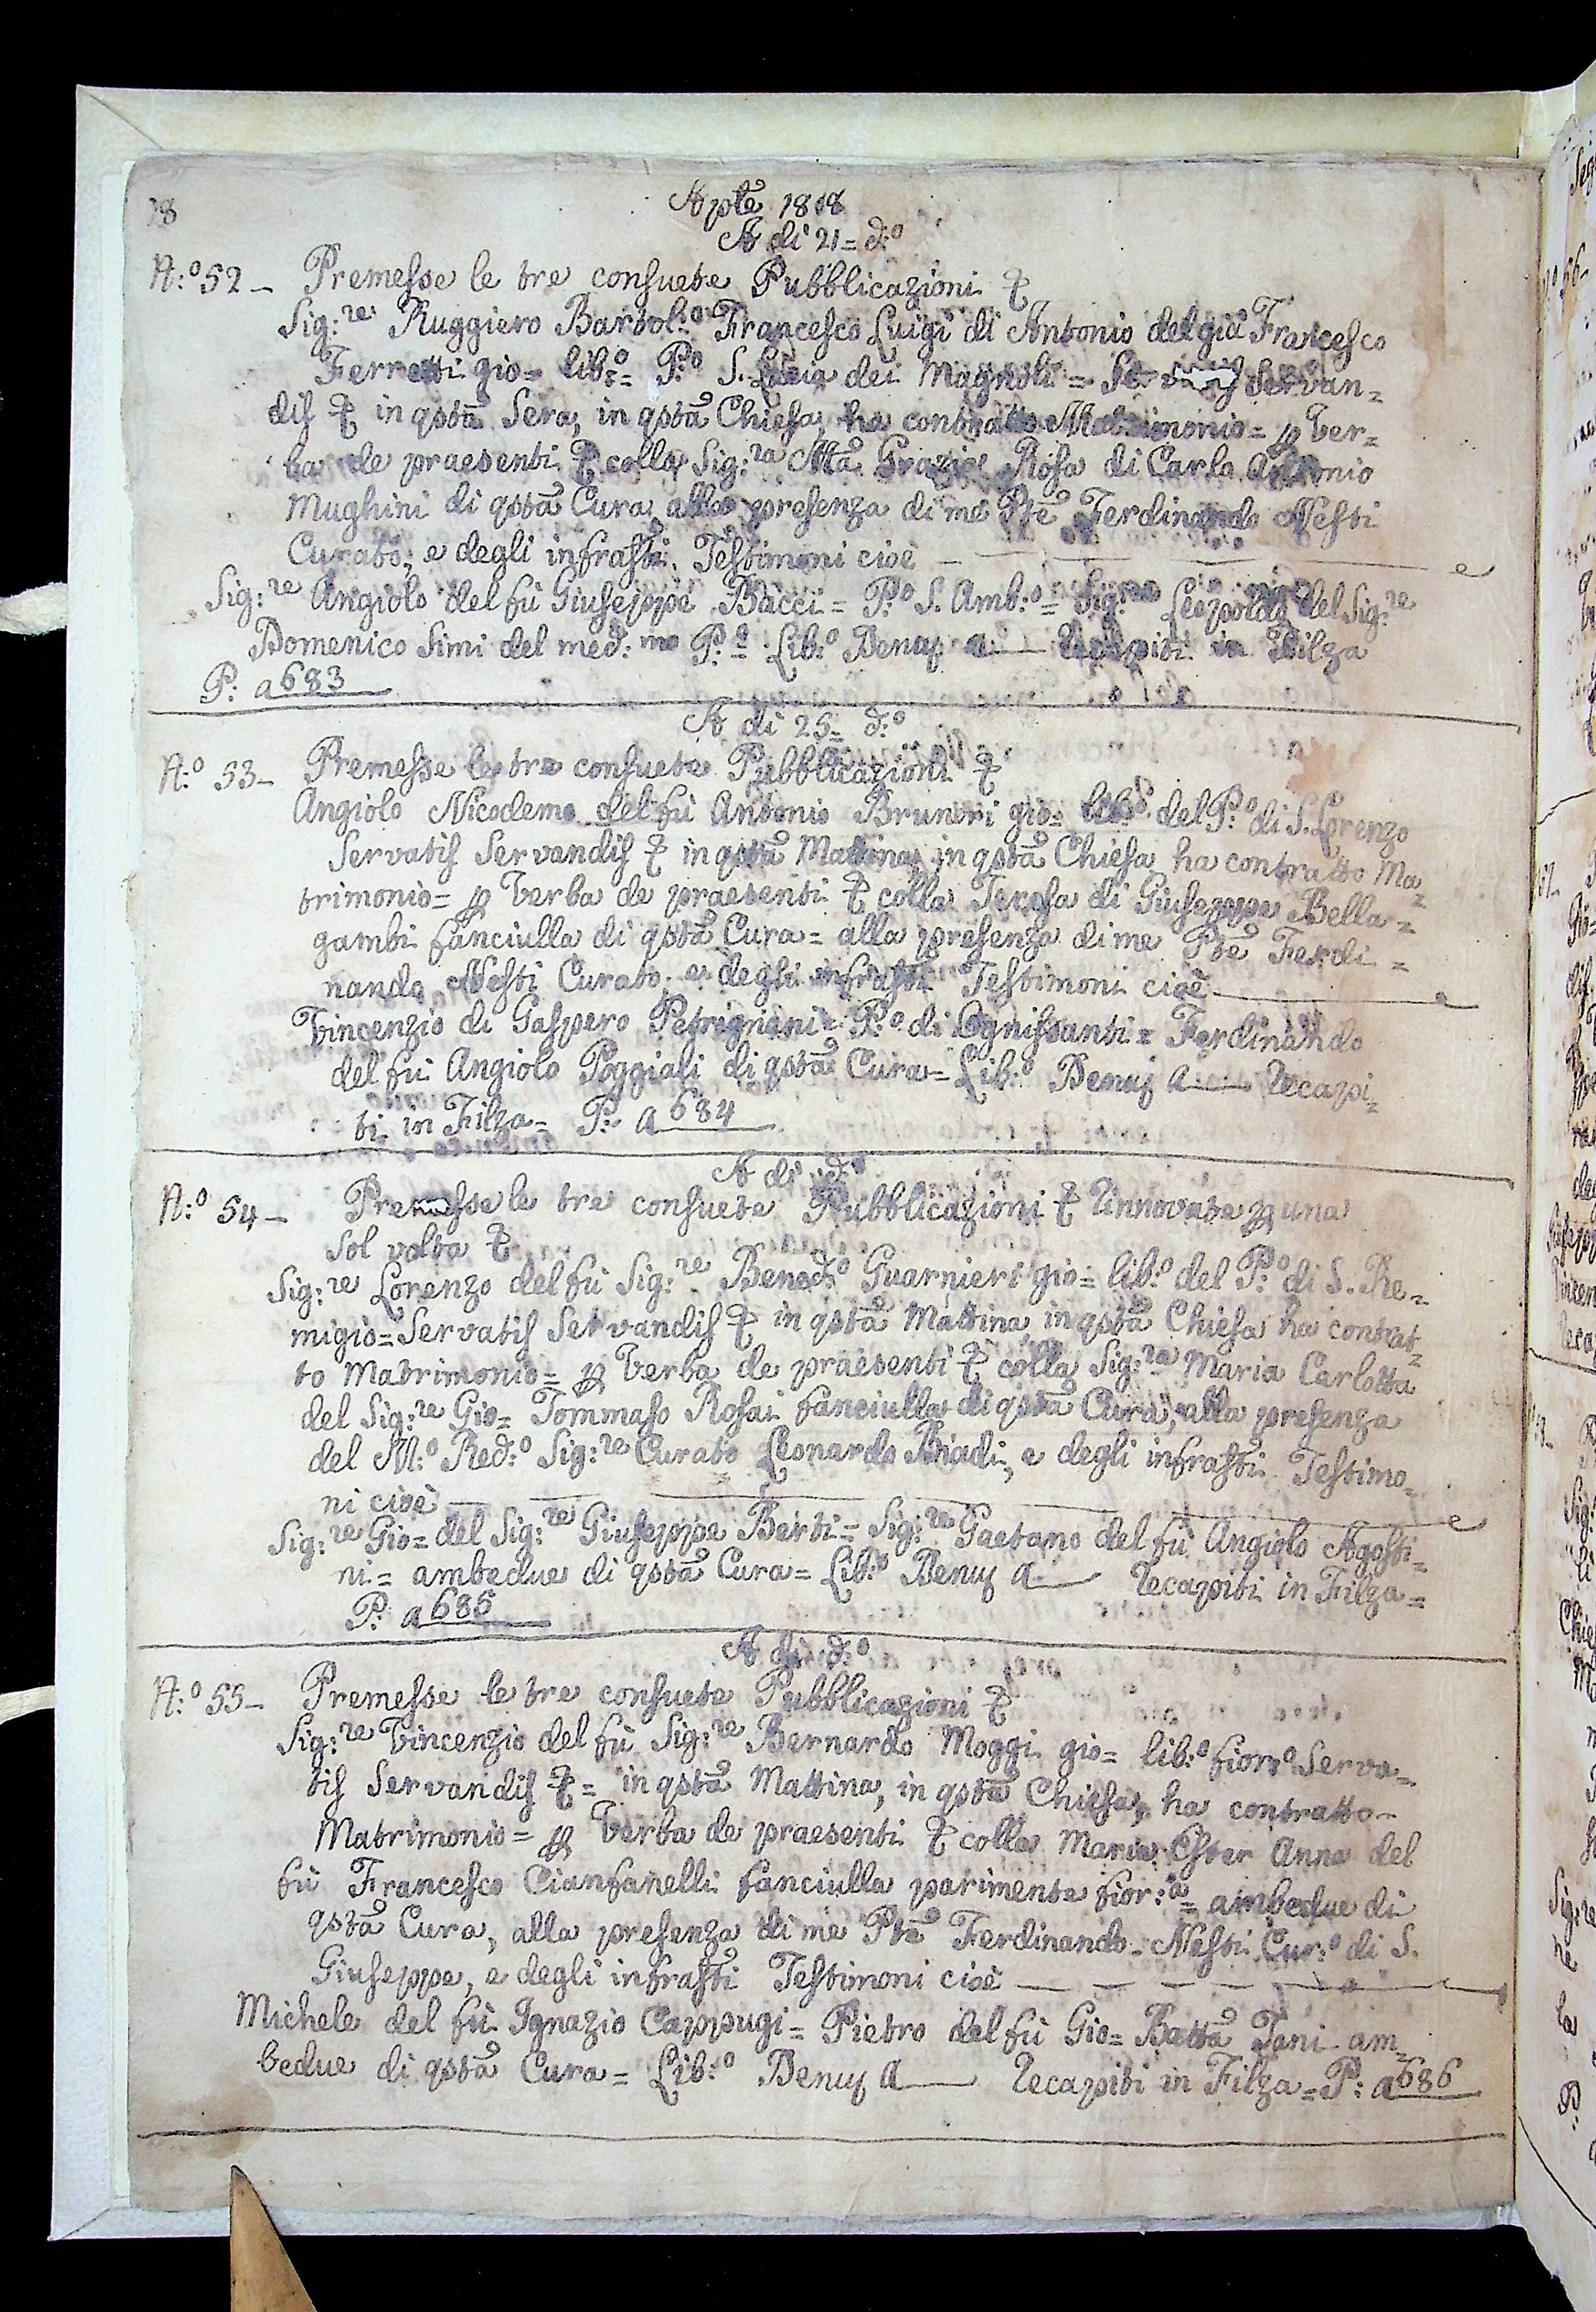 18
Aple 1818
A di 21= d:o
N:o 52- Premesse le tre consuete Pubblicazioni &
Sig:re Ruggiero Bartol:o Francesco Luigi di Antonio del già Francesco
Ferretti gio= lib:o= P:o S. Lucia dei Magnoli= Servan=
dis & in qsta Sera, in qsta Chiesa, ha contratto Matrimonio= p Ver=
ba de praesenti & colla Sig:ra Ma Grazia Rosa di Carlo Antonio
Mughini di qsta Cura alla presenza di me Pte Ferdinando Nesti
Curato, e degli infrasti Testimoni cioè
Sig:re Angiolo del fù Giuseppe Bacci= P:o S. Amb:o= Sig:re Leopoldo del Sig:re
Domenico Simi del med:mo P:o= Lib:o Benuy a recapiti in Filza
P: a 683
A di 25= d:o
N:o 53- Premesse le tre consuete Pubblicazioni &
Angiolo Nicodemo del fù Antonio Bruneri gio= lib:o del P:o di S. Lorenzo
Servatis Servandis & in qsta Mattina, in qsta Chiesa ha contratto Ma=
trimonio= p Verba de praesenti & colla Teresa di Giuseppe Bella=
gambi fanciulla di qsta Cura= alla presenza di me Pte Ferdi=
nando Nesti Curato, e degli infrasti Testimoni cioè
Vincenzio di Gaspero Petrignani= P:o di Ognissanti= Ferdinando
del fù Angiolo Poggiali di qsta Cura= Lib:o Benuy a recapi=
ti in Filza= P: a 684
A di d:o
N:o 54- Premesse le tre consuete Pubblicazioni & rinnovate p una
sol volta &
Sig:re Lorenzo del fù Sig:re Bened:o Guarnieri gio= lib:o del P:o di S. Re=
migio= Servatis Servandis & in qsta Mattina, in qsta Chiesa ha contrat=
to Matrimonio= p Verba de praesenti & colla Sig:ra Maria Carlotta
del Sig:re Gio= Tommaso Rosai fanciulla di qsta Cura, alla presenza
del M:o Red:o Sig:re Curato Leonardo Biadi, e degli infrasti Testimo=
ni cioè
Sig:re Gio= del Sig:re Giuseppe Berti= Sig:re Gaetano del fù Angiolo Agosti=
ni= ambedue di qsta Cura= Lib:o Benuy a recapiti in Filza=
P: a 685
A di d:o
N:o 55- Premesse le tre consuete Pubblicazioni &
Sig:re Vincenzio del fù Sig:re Bernardo Moggi gio= lib:o fior:o Serva=
tis Servandis &= in qsta Mattina, in qsta Chiesa, ha contratto-
Matrimonio= p Verba de praesenti & colla Maria Ester Anna del
fù Francesco Cianfanelli fanciulla parimente fior:a= ambedue di
qsta Cura, alla presenza di me Pte Ferdinando Nesti Cur:o di S.
Giuseppe, e degli infrasti Testimoni cioè
Michele del fù Ignazio Cappugi= Pietro del fù Gio= Batta Tani am=
bedue di qsta Cura= Lib:o Benuy a recapiti in Filza= P: a 686